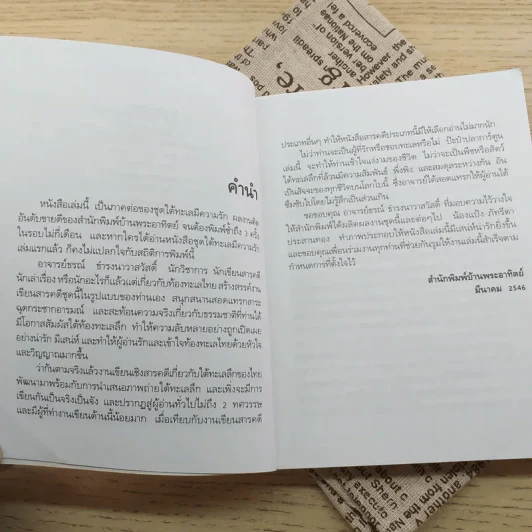 คำนำ
หนังสือเล่มนี้ เป็นภาคต่อของชุดใต้ทะเลมีความรัก ผลงานติด
อันดับขายดีของสำนักพิมพ์บ้านพระอาทิตย์ จนต้องพิมพ์ซ้ำถึง 3 ครั้ง
ในรอบไม่กี่เดือน และหากใครได้อ่านหนังสือชุดใต้ทะเลมีความรัก
เล่มแรกแล้ว ก็คงไม่แปลกใจกับสถิติการพิมพ์นี้
อาจารย์ธรณ์ ธำรงนาวาสวัสดิ์ นักวิชาการ นักเขียนสารคดี
นักเล่าเรื่อง หรือนักอะไรก็แล้วแต่เกี่ยวกับท้องทะเลไทย สร้างสรรค์งาน
เขียนสารคดีชุดนี้ในรูปแบบของท่านเอง สนุกสนานสอดแทรกสาระ
ฉุดกระชากอารมณ์ และสะท้อนความจริงเกี่ยวกับธรรมชาติที่ท่านได้
มีโอกาสสัมผัสใต้ท้องทะเลลึก ทำให้ความลับหลายอย่างถูกเปิดเผย
อย่างน่ารัก มีเสน่ห์ และทำให้ผู้อ่านรักและเข้าใจท้องทะเลไทยด้วยหัวใจ
และวิญญาณมากขึ้น
ว่ากันตามจริงแล้วงานเขียนเชิงสารคดีเกี่ยวกับใต้ทะเลลึกของไทย
พัฒนามาพร้อมกับการนำเสนอภาพถ่ายใต้ทะเลลึก และเพิ่งจะมีการ
เขียนกันเป็นจริงเป็นจัง และปรากฏสู่ผู้อ่านทั่วไปไม่ถึง 2 ทศวรรษ
และมีผู้ที่ทำงานเขียนด้านนี้น้อยมาก เมื่อเทียบกับงานเขียนสารคดี
ประเภทอื่นๆ ทำให้หนังสือสารคดีประเภทนี้มีให้เลือกอ่านไม่มากนัก
ไม่ว่าท่านจะเป็นผู้ที่รักหรือชอบทะเลหรือไม่ ป๊ะป๋าปลาการ์ตูน
เล่มนี้ จะทำให้ท่านเข้าใจแง่งามของชีวิต ไม่ว่าจะเป็นพืชหรือสัตว์
ใต้ทะเลลึกที่ล้วนมีความสัมพันธ์ พึ่งพิง และสมดุลระหว่างกัน อัน
เป็นสัจจะของทุกชีวิตบนโลกใบนี้ ซึ่งอาจารย์ได้สอดแทรกให้ผู้อ่านได้
ซึมซับไปโดยไม่รู้สึกเป็นส่วนเกิน
ขอขอบคุณ อาจารย์ธรณ์ ธำรงนาวาสวัสดิ์ ที่มอบความไว้วางใจ
ให้สำนักพิมพ์ได้ผลิตผลงานชุดนี้และต่อๆไป
ประสานทอง ทำภาพประกอบให้หนังสือเล่มนี้มีเสน่ห์น่ารักยิ่งขึ้น
และขอบคุณเพื่อนร่วมงานทุกท่านที่ช่วยกันรุมให้งานเล่มนี้สำเร็จตาม
กำหนดการที่ตั้งใจไว้
สำนักพิมพ์บ้านพระอาทิตย์
มีนาคม 2546